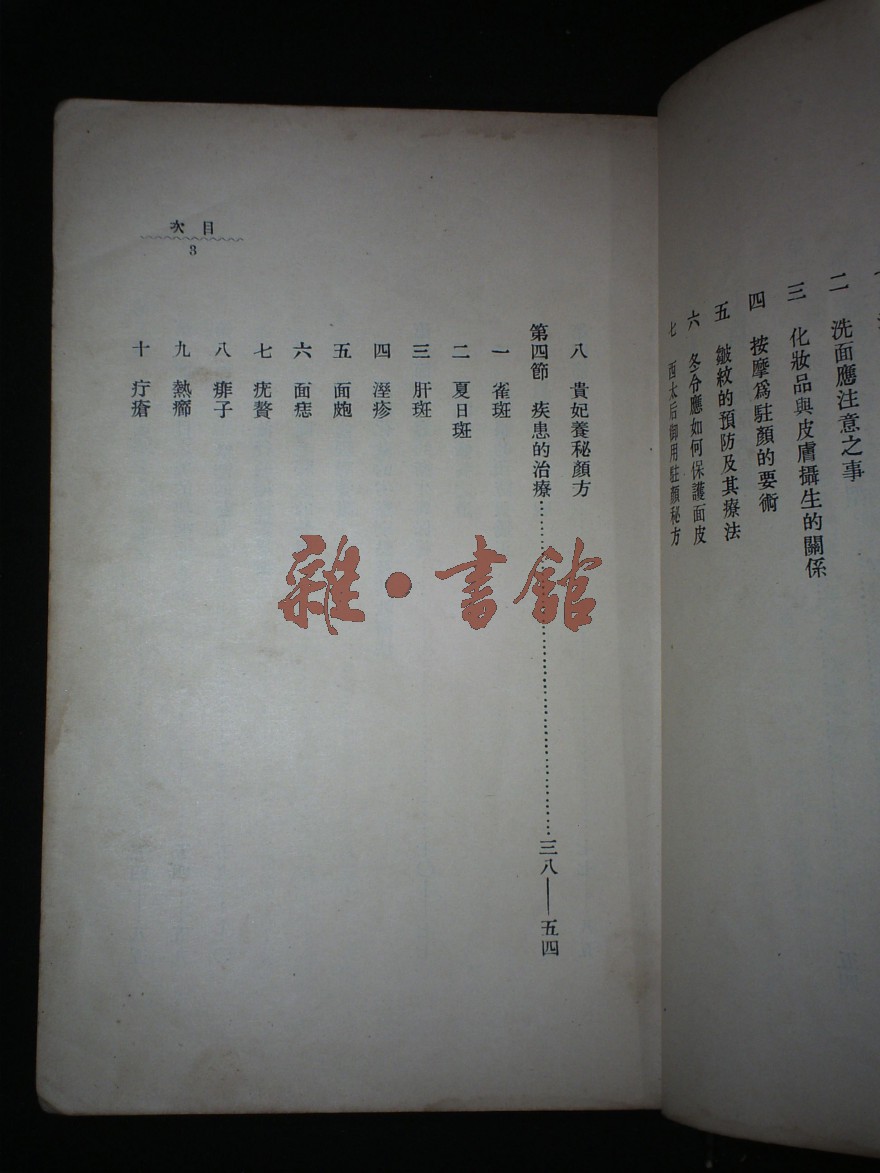 二　洗面應注意之事
三　化妝品與皮膚攝生的關係
四　按摩爲駐顏的要術
五　皺紋的預防及其療法
六　冬令應如何保護面皮
七　西太后御用駐顏秘方
次目
3
八　貴妃養秘顏方
第四節　疾患的治療……三八——五四
一　雀斑
二　夏日斑
三　肝斑
四　溼疹
五　面皰
六　面痣
七　疣贅
八　痱子
九　熱癤
十　疔瘡
雜·書館